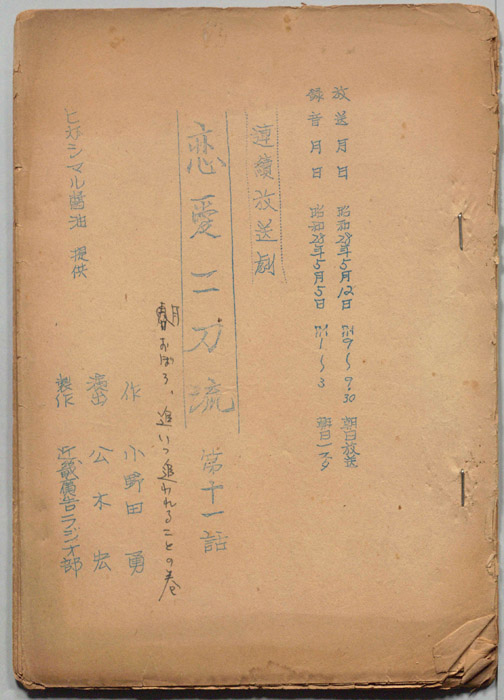 放送月日 昭和28年5月12日 PM 9〜9.30 朝日放送
録音月日 昭和28年5月5日 PM 1〜3 朝日スタ
連續放送劇
恋愛二刀流 第十一話
春月おぼろ、追いつ追われることの巻
作 小野田 勇
演出 公木 宏
製作 近畿廣告ラジオ部
ヒガシマル醤油 提供